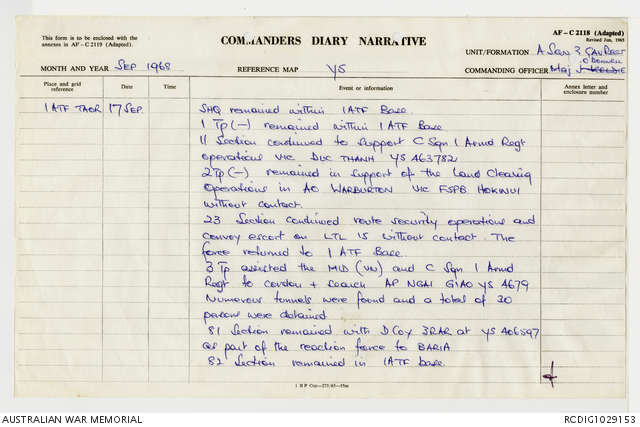 This form is to be enclosed with the
annexes in AF—C 2119 (Adapted).
COMMANDERS DIARY NARRATIVE
AF—C 2118 (Adapted)
Revised Jun, 1965
UNIT/FORMATION A Sqn 3 CAV REGT
MONTH AND YEAR SEP 1968
REFERENCE MAP YS
O'DONNELL
COMMANDING OFFICER Maj J
Place and grid
reference
Date
Time
Event or information
Annex letter and
enclosure number
1ATF TAOR 17 SEP
SHQ remained within 1ATF Base.
1 Tp (-) remained within 1 ATF Base
11 Section continued to support C Sqn 1 Armd Regt
operations VIC DUC THANH YS 463782
2 Tp (-) remained in support of the Land Clearing
Operations in AO WARBURTON VIC FSPB HOKINUI
without contact.
23 Section continued route security operations and
convoy escort on LTL 15 without contact. The
force returned to 1 ATF Base.
3 Tp assisted the MID (VN) and C Sqn 1 Armd
Regt to cordon + search AP NGAI GIAO YS 4679
Numerous tunnels were found and a total of 30
persons were detained
81 Section remained with D Coy 3RAR at YS 406597
as part of the reaction force to BARIA
82 Section remained in 1ATF base.
AUSTRALIAN WAR MEMORIAL
RCDIG1029153